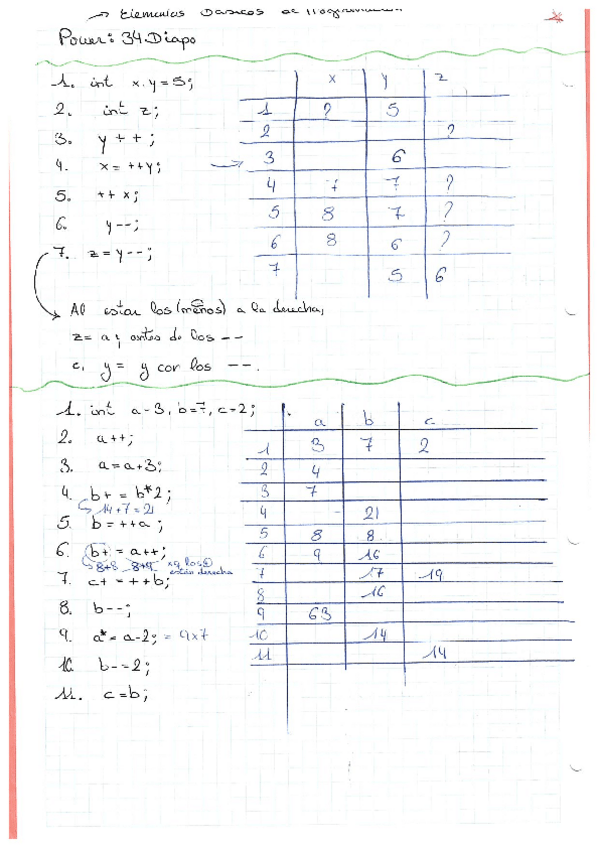 → Elementos Básicos de Programación
Power: 34 Diapo
1. int x, y=5;
2. int z;
3. y++;
4. x=++y;
5. ++x;
6. y--;
7. z=y--;
x y z
1 ? 5
2 ?
→ 3 6
4 7 7 ?
5 8 7 ?
6 8 6 ?
7 5 6
→ Al estar los (menos) a la derecha,
z= a y antes de los --
e, y= y con los --.
1. int a=3, b=7, c=2;
2. a++;
3. a=a+3;
4. b+=b*2;
14+7=21
5. b=++a;
6. b+=a++;
8+8 8+9 xq los
están derecha
7. c+=++b;
8. b--;
9. a*=a-2; = 9x7
10. b-=2;
11. c=b;
a b c
1 3 7 2
2 4
3 7
4 21
5 8 8
6 9 16
7 17 19
8 16
9 63
10 14
11 14